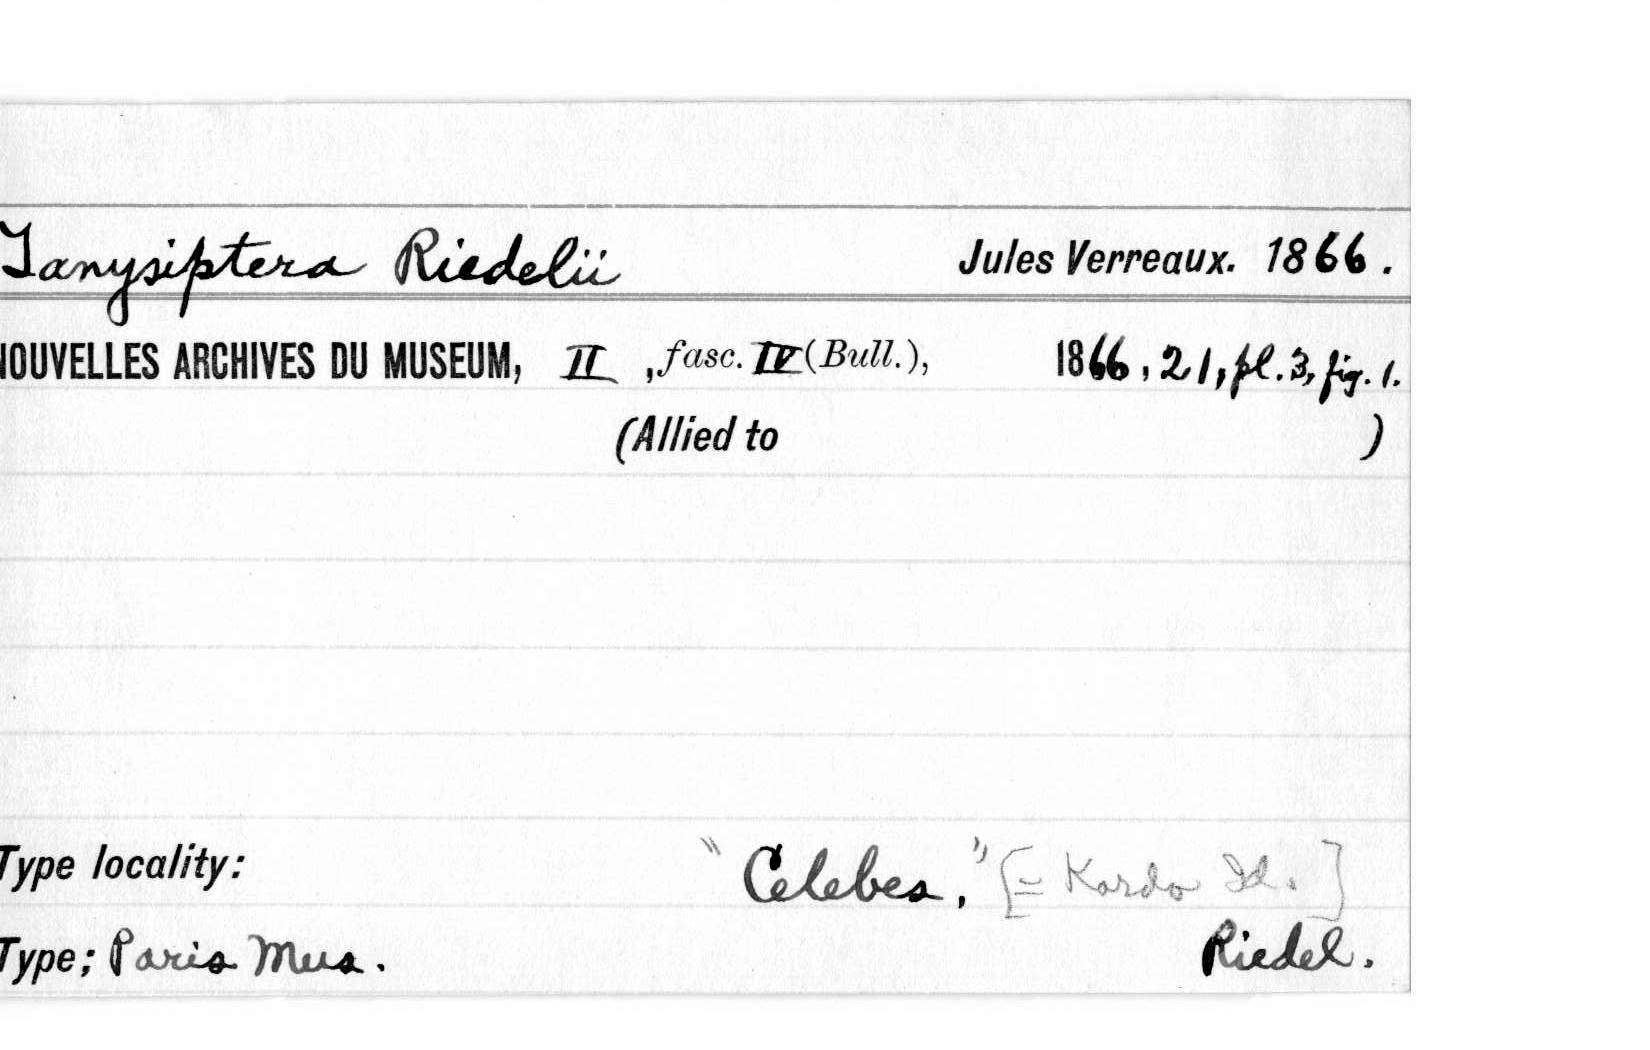 Tanysiptera Riedelii Jules Verreaux. 1866.
NOUVELLES ARCHIVES DU MUSEUM, II, fasc. IV (Bull.), 1866, 21, pl. 3, fig. 1.
(Allied to )
Type locality: "Celebes," [= Kordo Id.]
Type; Paris Mus. Riedel.